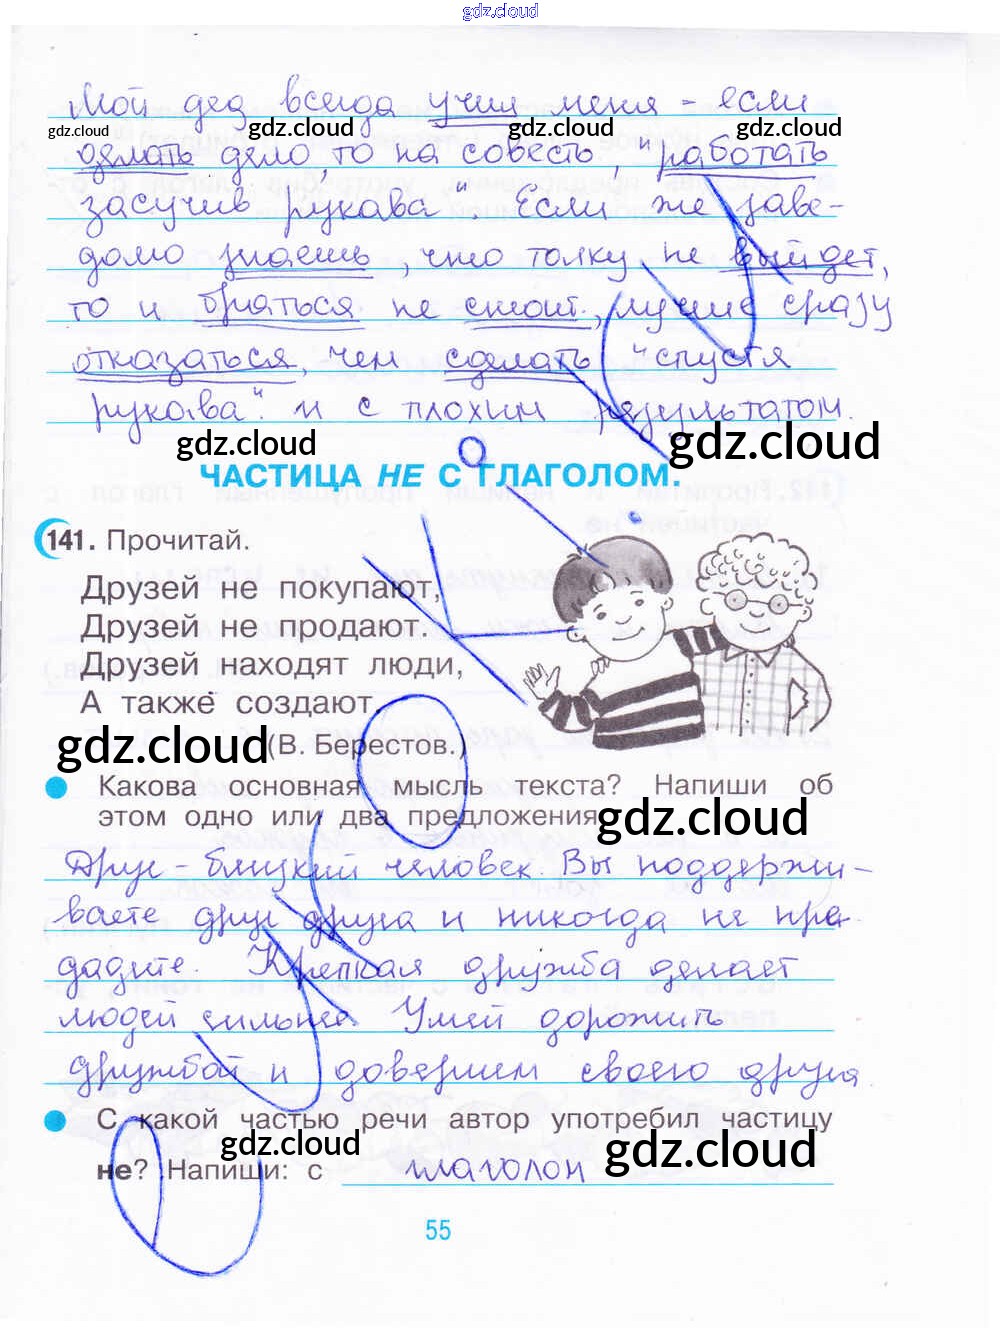 gdz.cloud
Мой дед всегда учил меня - если
gdz.cloud gdz.cloud gdz.cloud
делать дело, то на совесть, "работать
засучив рукава". Если же заве-
домо знаешь, что толку не выйдет,
то и браться не стоит, лучше сразу
отказаться, чем сделать "спустя
рукава" и с плохим результатом.
gdz.cloud gdz.cloud
ЧАСТИЦА НЕ С ГЛАГОЛОМ.
141. Прочитай.
Друзей не покупают,
Друзей не продают.
Друзей находят люди,
А также создают.
gdz.cloud (В. Берестов.)
Какова основная мысль текста? Напиши об
этом одно или два предложения.
gdz.cloud
Друг - близкий человек. Вы поддержи-
ваете друг друга и никогда не пре-
дадите. Крепкая дружба делает
людей сильнее. Умей дорожить
дружбой и доверием своего друга.
С какой частью речи автор употребил частицу
не? Напиши: с глаголом
gdz.cloud gdz.cloud
55